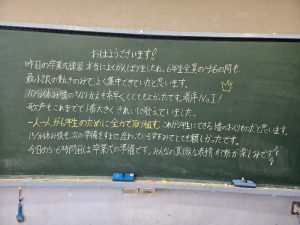 おはようございます!
昨日の卒業式練習、本当によくがんばりましたね。6年生全員の呼名の間も
最小限の動きのみでよく集中できていたと思います。
10分休み後の切りかえも素早くてとてもよかったです。着席No.1!
歌声もこれまでで1番大きくきれいに歌えていました。
一人一人が6年生のために全力で取り組む。これが5年生にできる1番のおくりものだと思います。
15分休み後も次の準備を
とても嬉しかったです。
今日の5・6時間目は卒業式の準備です。みんなの真剣な表情、行動が楽しみです。